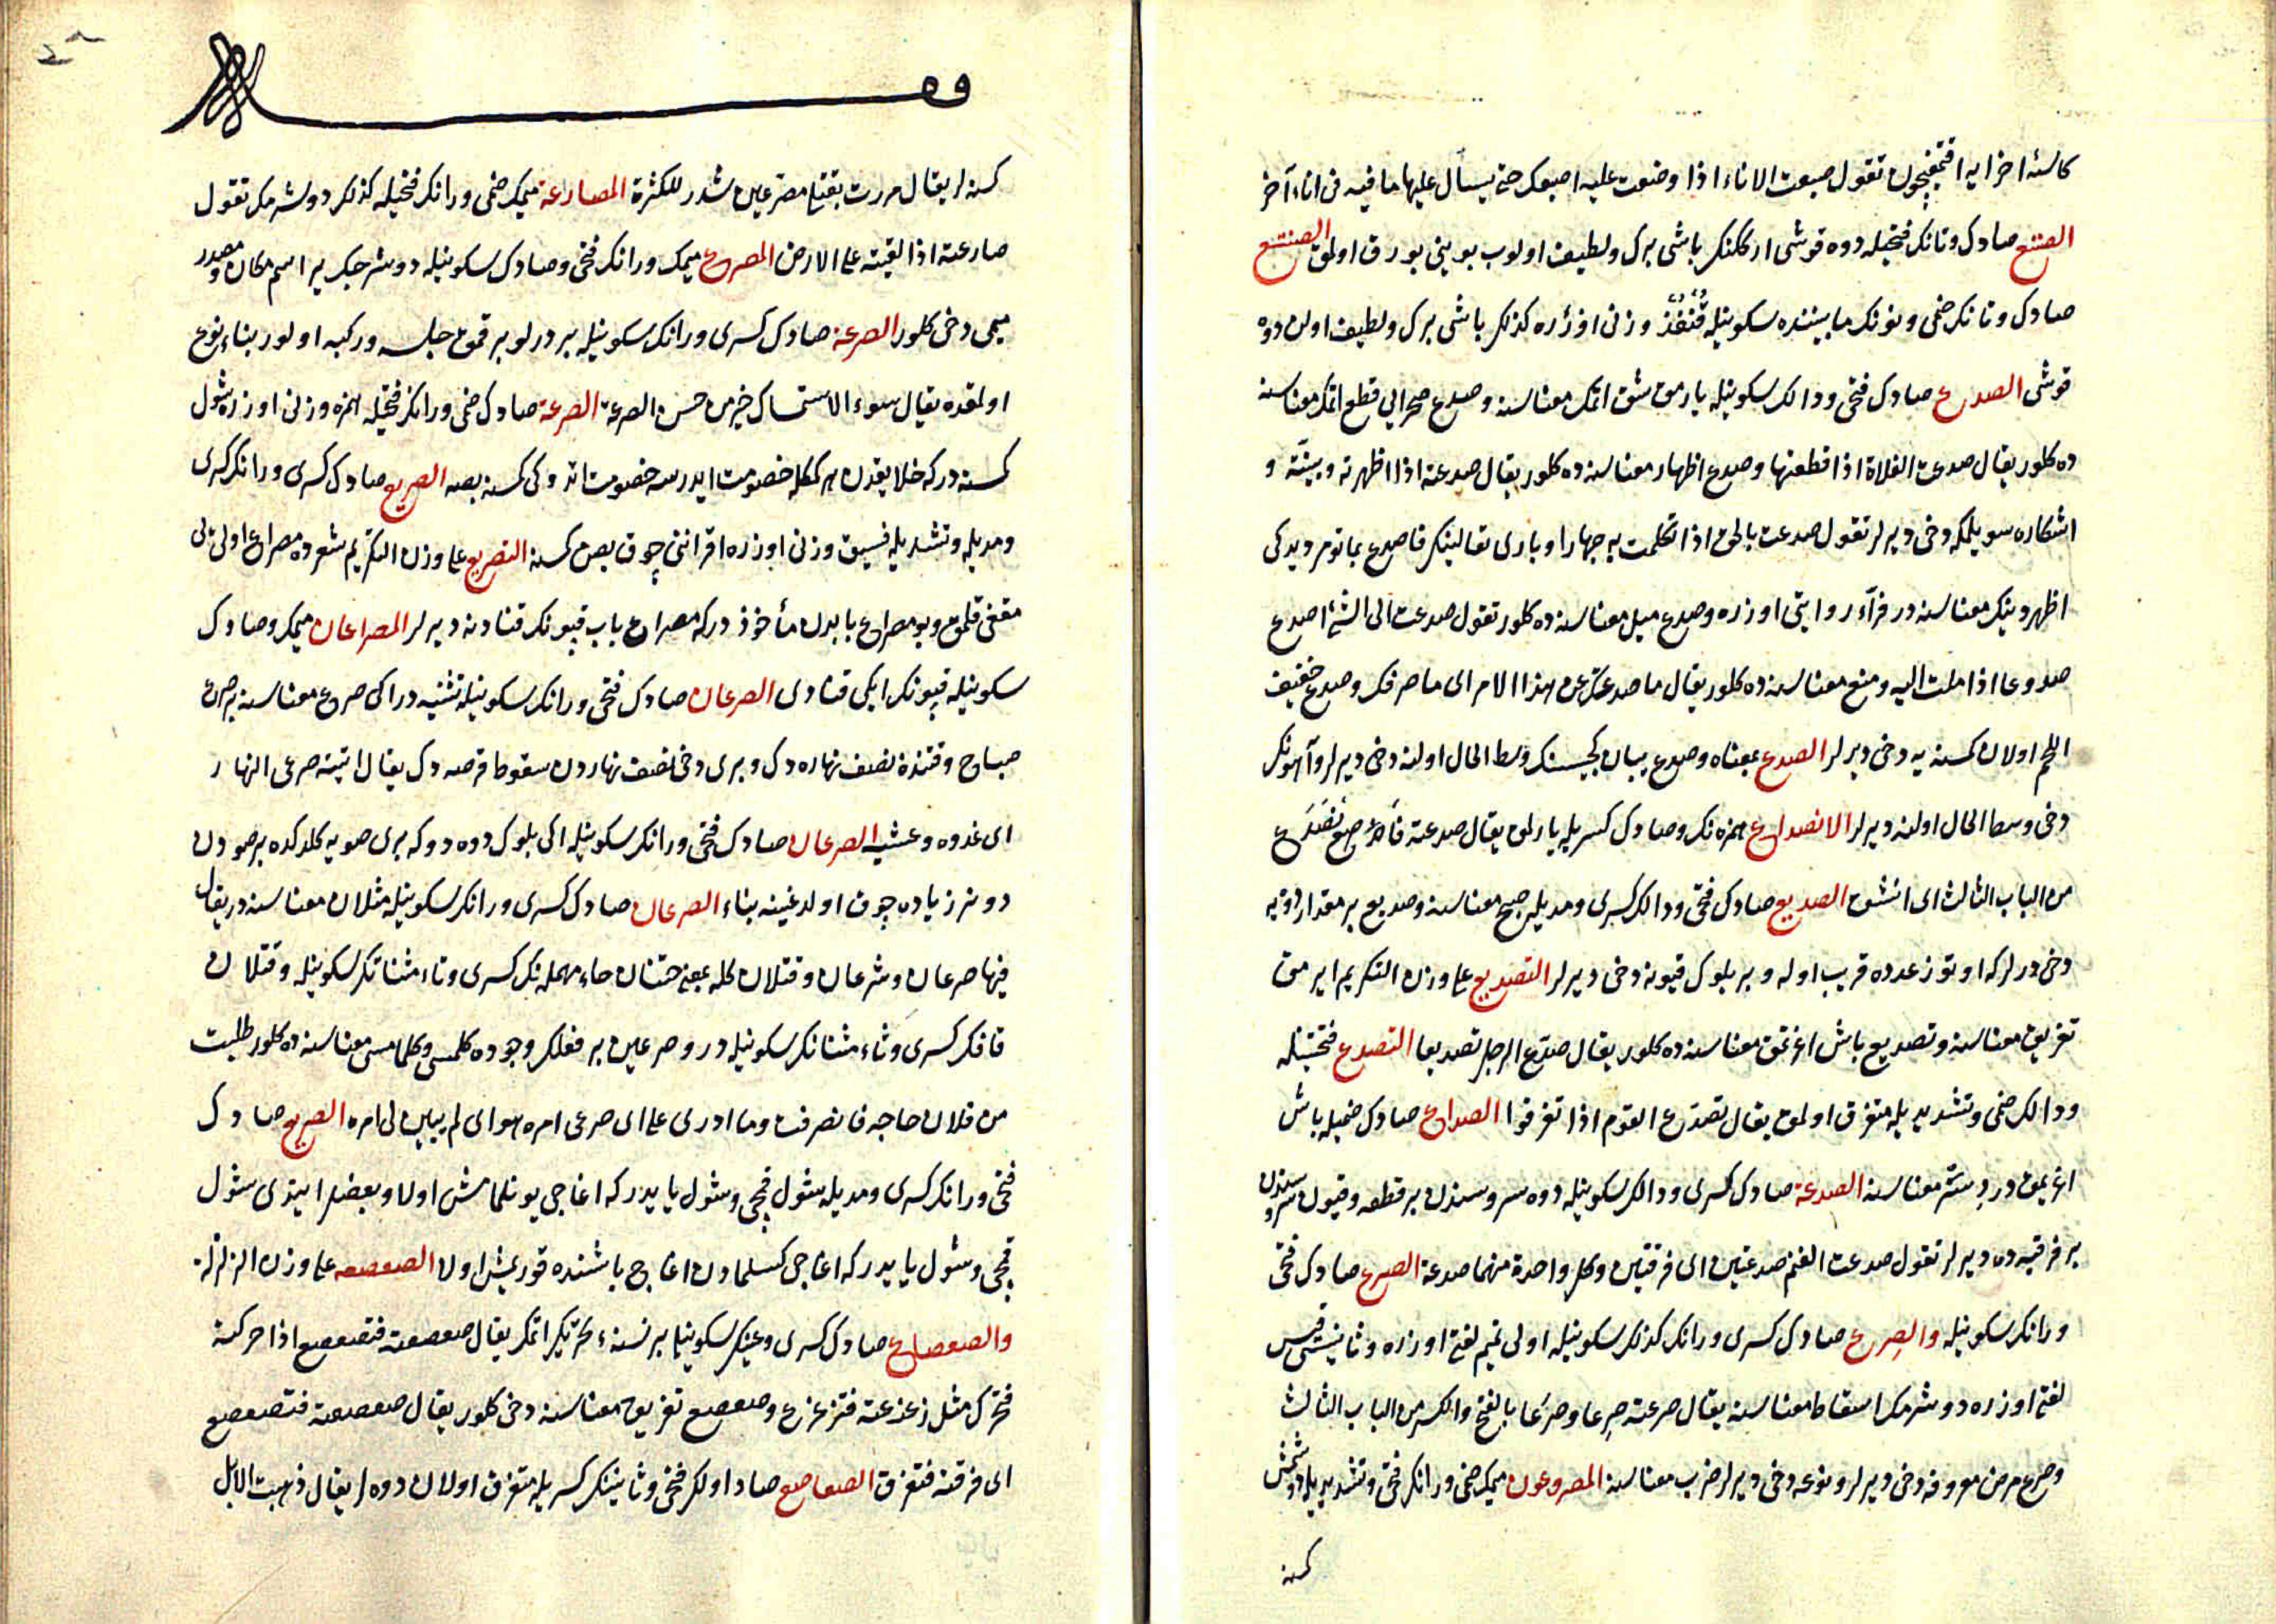 كاسهٔ اخرايه اقتمغيچون تقول صبعت الاناء اذا وضعت عليه اصبعك حتى يسال عليها ما فيه فى اناء آخر
الصتع صادك وتانك فتحيله دوه قوشى اركلنك باشى برك ولطيف اولوب بوينى يورق اولمق الصنتع
صادك وتانك ضمى ونونك مابيننده سكونيله قُنْفُذ وزنى اوزره كذلك باشى برك ولطيف اولن دوه
قوشى الصدع صادك فتحى ودالك سكونيله يارمق شق اتمك معناسنه وصدع صحرايى قطع اتمك معناسنه
ده كلور يقال صدعت الفلاة اذا قطعتها وصدع اظهار معناسنه ده كلور يقال صدعته اذا اظهرته وبينته و
اشكاره سويلمكه دخى ديرلر تقول صدعت بالحق اذا تكلمت به جهارا وبارى تعالينك فاصدع بما تؤمر ديدكى
اظهر دينك معناسنه در فرآء روايتى اوزره وصدع ميل معناسنه ده كلور تقول صدعت الى الشئ اصدع
صدوعا اذا ملت اليه ومنع معناسنه ده كلور يقال ما صدعك عن هذا الامر اى ما صرفك وصدع خفيف
اللحم اولان كمسنه يه دخى ديرلر الصدع بمعناه وصدع يبان كچيسنك وسط الحال اولنه دخى ديرلر وآهونك
دخى وسط الحال اولنه ديرلر الانصداع همزه نك وصادك كسريله يارلمق يقال صدعته فانصدع
من الباب الثالث اى انشق الصديع صادك فتحى ودالك كسرى ومديله صبح معناسنه وصديع بر مقدار دوه يه
دخى ديرلر كه اوتوز عدده قريب اوله وبر بلوك قيونه دخى ديرلر التصديع على وزن التكريم ايرمق
تفريق معناسنه وتصديع باش اغرتمق معناسنه ده كلور يقال صدع الرجل تصديعا التصدع فتحتينله
ودالك ضمى وتشديديله متفرق اولمق يقال تصدع القوم اذا تفرقوا الصداع صادك ضميله باش
اغريمق درد ستر معناسنه الصدعة صادك كسرى ودالك سكونيله دوه سروسندن بر قطعه وقيون سروسندن
بر فرقيه ده ديرلر تقول صدعت الغنم صدعتين اى فرقتين وكل واحدة منهما صدعة الصرع صادك فتحى
ورانك سكونيله والصرع صادك كسرى ورانك كذلك سكونيله اولى تميم لغتى اوزره وثانيسى قيس
لغتى اوزره دوشرمك اسقاط معناسنه يقال صرعته صرعا وصرعا بالفتح والكسر من الباب الثالث
وصرع مرض معروفه دخى ديرلر ونوعه دخى ديرلر ضرب معناسنه المصرعون ميمك ضمى ورانك فتحى وتشديديله دوشمش
كمسنه
كمسنه لر يقال مررت بقتلى مصرعين شدد للكثرة المصارعة ميمك ضمى ورانك فتحيله كذلك دوشرمك تقول
صارعته اذا لقيته على الارض المصرع ميمك ورانك فتحى وصادك سكونيله دوشرجك ير اسم مكان ومصدر
ميمى دخى كلور الصرعة صادك كسرى ورانك سكونيله بر درلو بر قمق جلسه وركبه اولور بناء نوع
اولمقده يقال سوء الاستمساك خير من حسن الصرعة الصرعة صادك ضمى ورانك فتحيله همزه وزنى اوزره شول
كمسنه در كه خلايقدن هر كمكله خصومت ايدرسه خصومت اتدوكى كمسنه بصه الصريع صادك كسرى ورانك كسرى
ومديله وتشديديله فسيق وزنى اوزره اقراننى چوق بصن كمسنه التصريع على وزن التكريم شعرده مصراع اولى يى
مقفى قلمق وبو مصراع بابدن مأخوذ در كه مصراع باب قپونك قنادينه ديرلر المصراعان ميمك وصادك
سكونيله قپونك ايكى قنادى الصرعان صادك فتحى ورانك سكونيله تثنيه در اكى صرع معناسنه بر صرع
صباح وقتنده نصف نهاره دك وبرى دخى نصف نهاردن سقوط قرصه دك يقال اتيته صرعى النهار
اى غدوه وعشيه الصرعان صادك فتحى ورانك سكونيله اكى بلوك دوه دو كه برى صويه كلدكده بر صودن
دونر زياده چوق اولدغينه بناء الصرعان صادك كسرى ورانك سكونيله مثلان معناسنه در يقال
فيها صرعان وشرعان وقتلان كله بمعنى حتنان حاء مهمله نك كسرى وتاء مثناتك سكونيله وقتلان
قافك كسرى وتاء مثناتك سكونيله در وصرعين بر فعلك وجوده كلمسى وكلمامسى معناسنه ده كلور طلبت
من فلان حاجه فانصرفت وما ادرى على اى صرعى امره هو اى لم يبين لى امره الصريع صادك
فتحى ورانك كسرى ومديله شول قمچى وشول ياىدر كه اغاجى يونلمامش اولا وبعضلر ايتدى شول
قمچى وشول ياىدر كه اغاجى كسلمادن اغاج باشنده قوريمش اولا الصعصعه على وزن الزلزله
والصعصاع صادك كسرى وعينك سكونيله بر نسنه‌ء تحريك اتمك يقال صعصعته فتصعصع اذا حركته
فتحرك مثل زعزعته فتزعزع وصعصع تفريق معناسنه دخى كلور يقال صعصعته فتصعصع
اى فرقته فتفرق الصعاصع صاد اولك فتحى وثانينك كسريله متفرق اولان دوه لر يقال ذهبت الابل